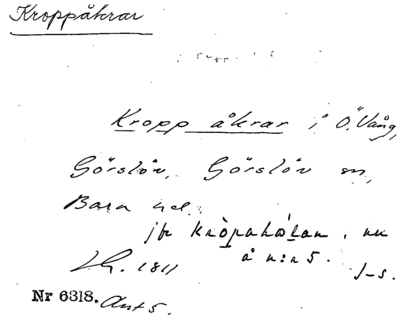 Kroppåkrar
Kropp åkrar i Ö. Vång,
Görslöv, Görslöv sn,
Bara hd.
jfr kròpahálan, nu
å n:r 5.
LH. 1811
J-s.
Nr 6318. Ant 5.